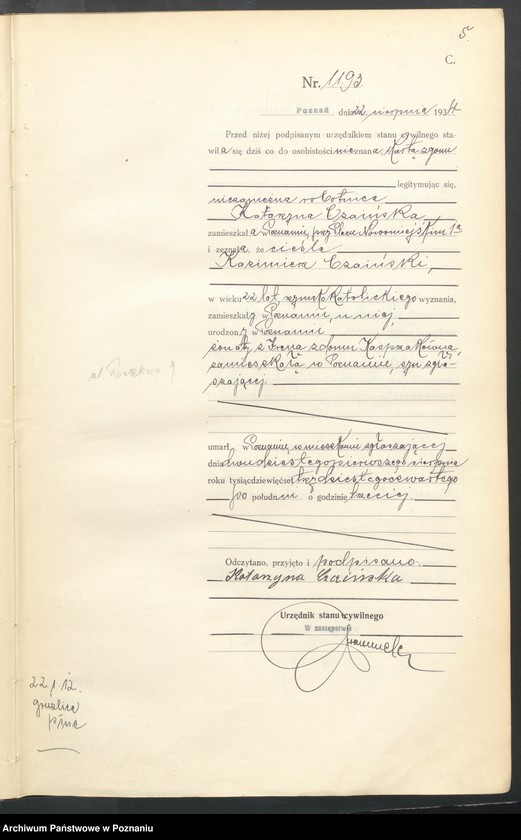 5.
C.
Nr. 1193
Poznań, dnia 22 sierpnia 1934
Przed niżej podpisanym urzędnikiem stanu cywilnego sta-
wiła się dziś co do osobistości nieznana, Kartą zgonu
legitymując się,
niezamężna robotnica
Katarzyna Czaińska,
zamieszkała w Poznaniu, przy Placu Nowomiejskim
i zeznała, że cieśla
Kazimierz Czaiński,
w wieku 22 lat, rzymsko katolickiego wyznania,
zamieszkały w Poznaniu, u niej,
urodzony w Poznaniu
żonaty z Ireną z domu
zamieszkałą w Poznaniu, syn zgła-
szającej.
umarł w Poznaniu, w mieszkaniu zgłaszającej
dnia dwudziestego pierwszego sierpnia
roku tysiąc dziewięćset trzydziestego czwartego
po południu o godzinie trzeciej.
Odczytano, przyjęto i podpisano.
Katarzyna Czaińska
Urzędnik stanu cywilnego
W zastępstwie
22.1.12.
gruźlica
płuc
Archiwum Państwowe w Poznaniu